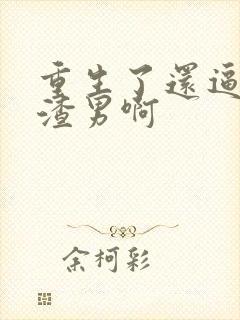 重生了還逼
渣男啊
余柯彩